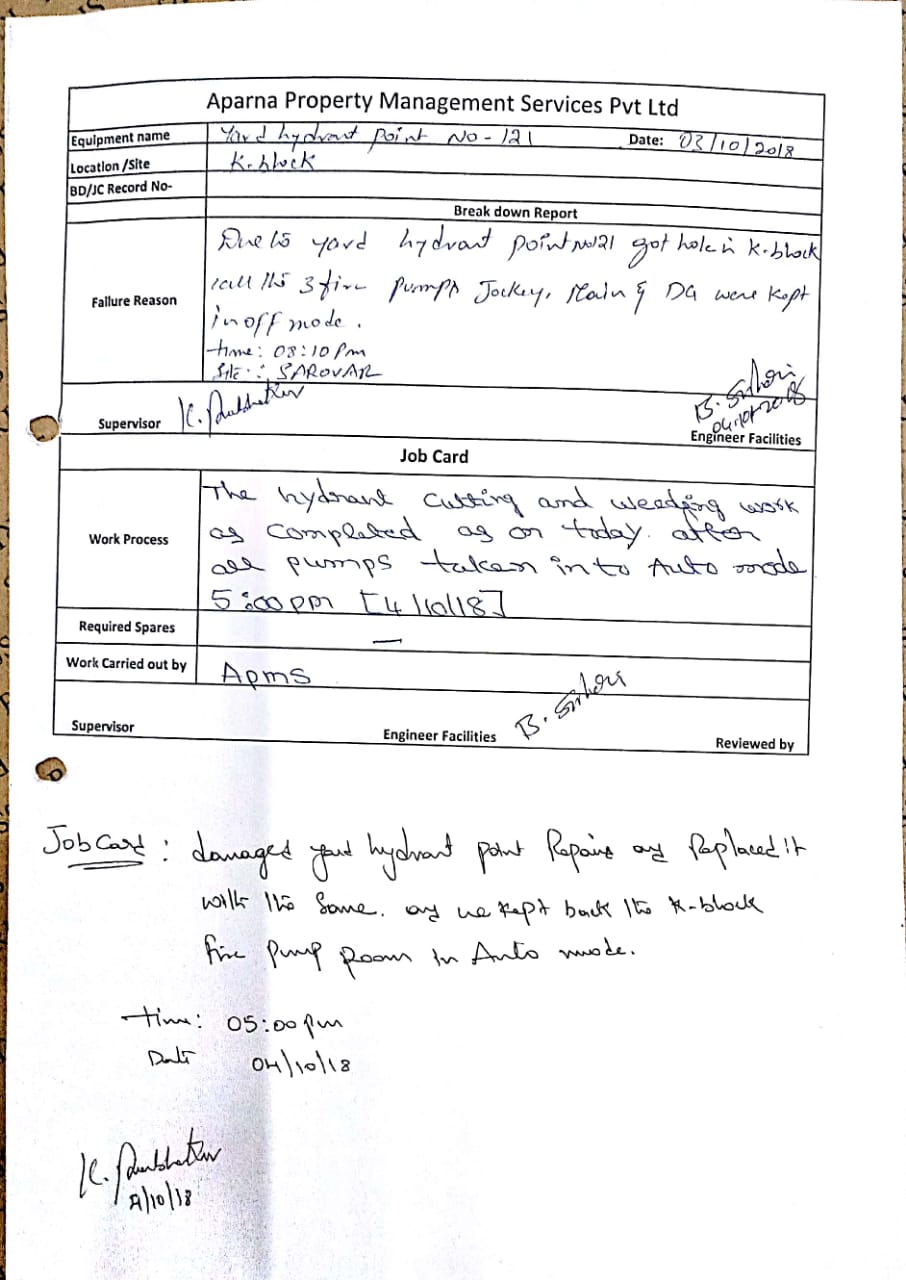 Aparna Property Management Services Pvt Ltd
Equipment name Yard hydrant point No - 121 Date: 03/10/2018
Location /Site K-block
BD/JC Record No-
Break down Report
Failure Reason
Due to yard hydrant point no 121 got hole in K-block
all the 3 fire pumps Jockey, Main & DG were kept
in off mode.
time: 03:10 Pm
Site: SAROVAR
Supervisor
B.
Engineer Facilities
Job Card
Work Process
The hydrant cutting and work
as completed as on today. after
all pumps taken into Auto mode
5:00 pm [4/10/18]
Required Spares —
Work Carried out by Apms
Supervisor Engineer Facilities B. Reviewed by
Job Card : damaged yard hydrant point Repair and Replaced it
with the same. and we kept back the K-block
fire pump Room in Auto mode.
time: 05:00 pm
Date 04/10/18
K.